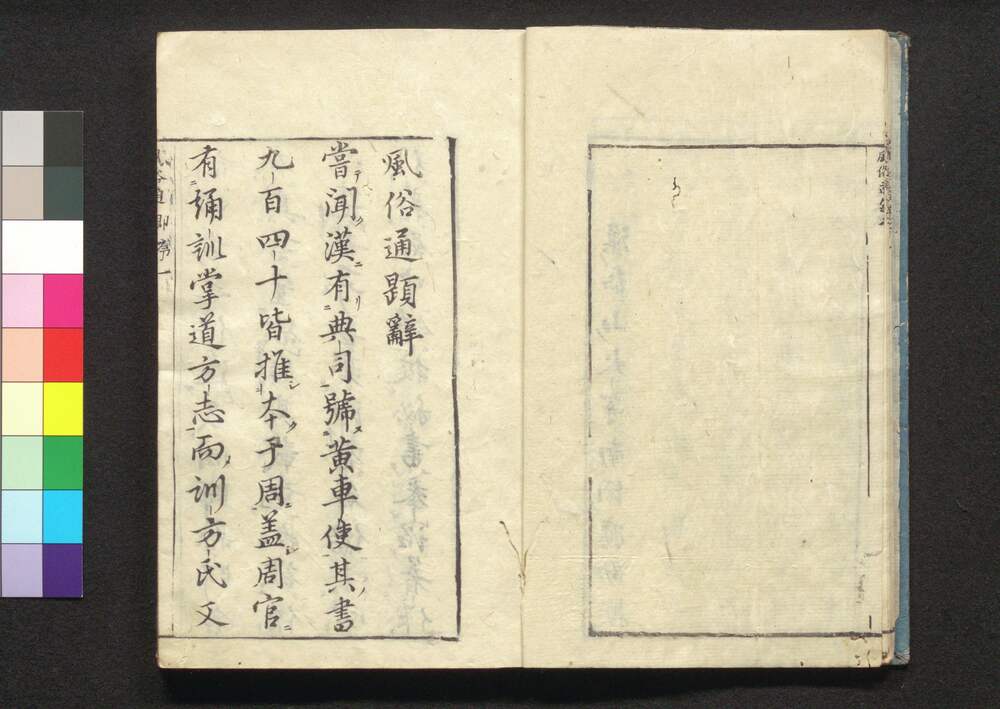 風俗通題辭
嘗聞漢有典司號黃車使其書
九百四十皆推本于周蓋周官
有誦訓掌道方志而訓方氏又